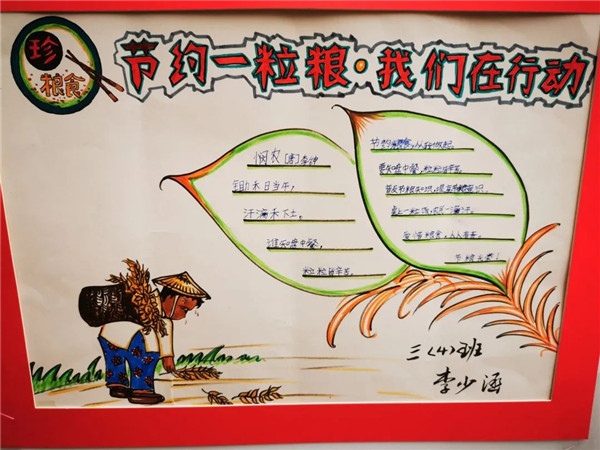 珍
粮食
节约一粒粮·我们在行动
悯农 [唐] 李绅
锄禾日当午,
汗滴禾下土。
谁知盘中餐,
粒粒皆辛苦。
节约粮食,从我做起。
要知盘中餐,粒粒皆辛苦。
普及节粮知识,提高节粮意识。
桌上一粒饭,农民一滴汗。
爱惜粮食,人人有责。
节粮光荣!
三(4)班
李少涵